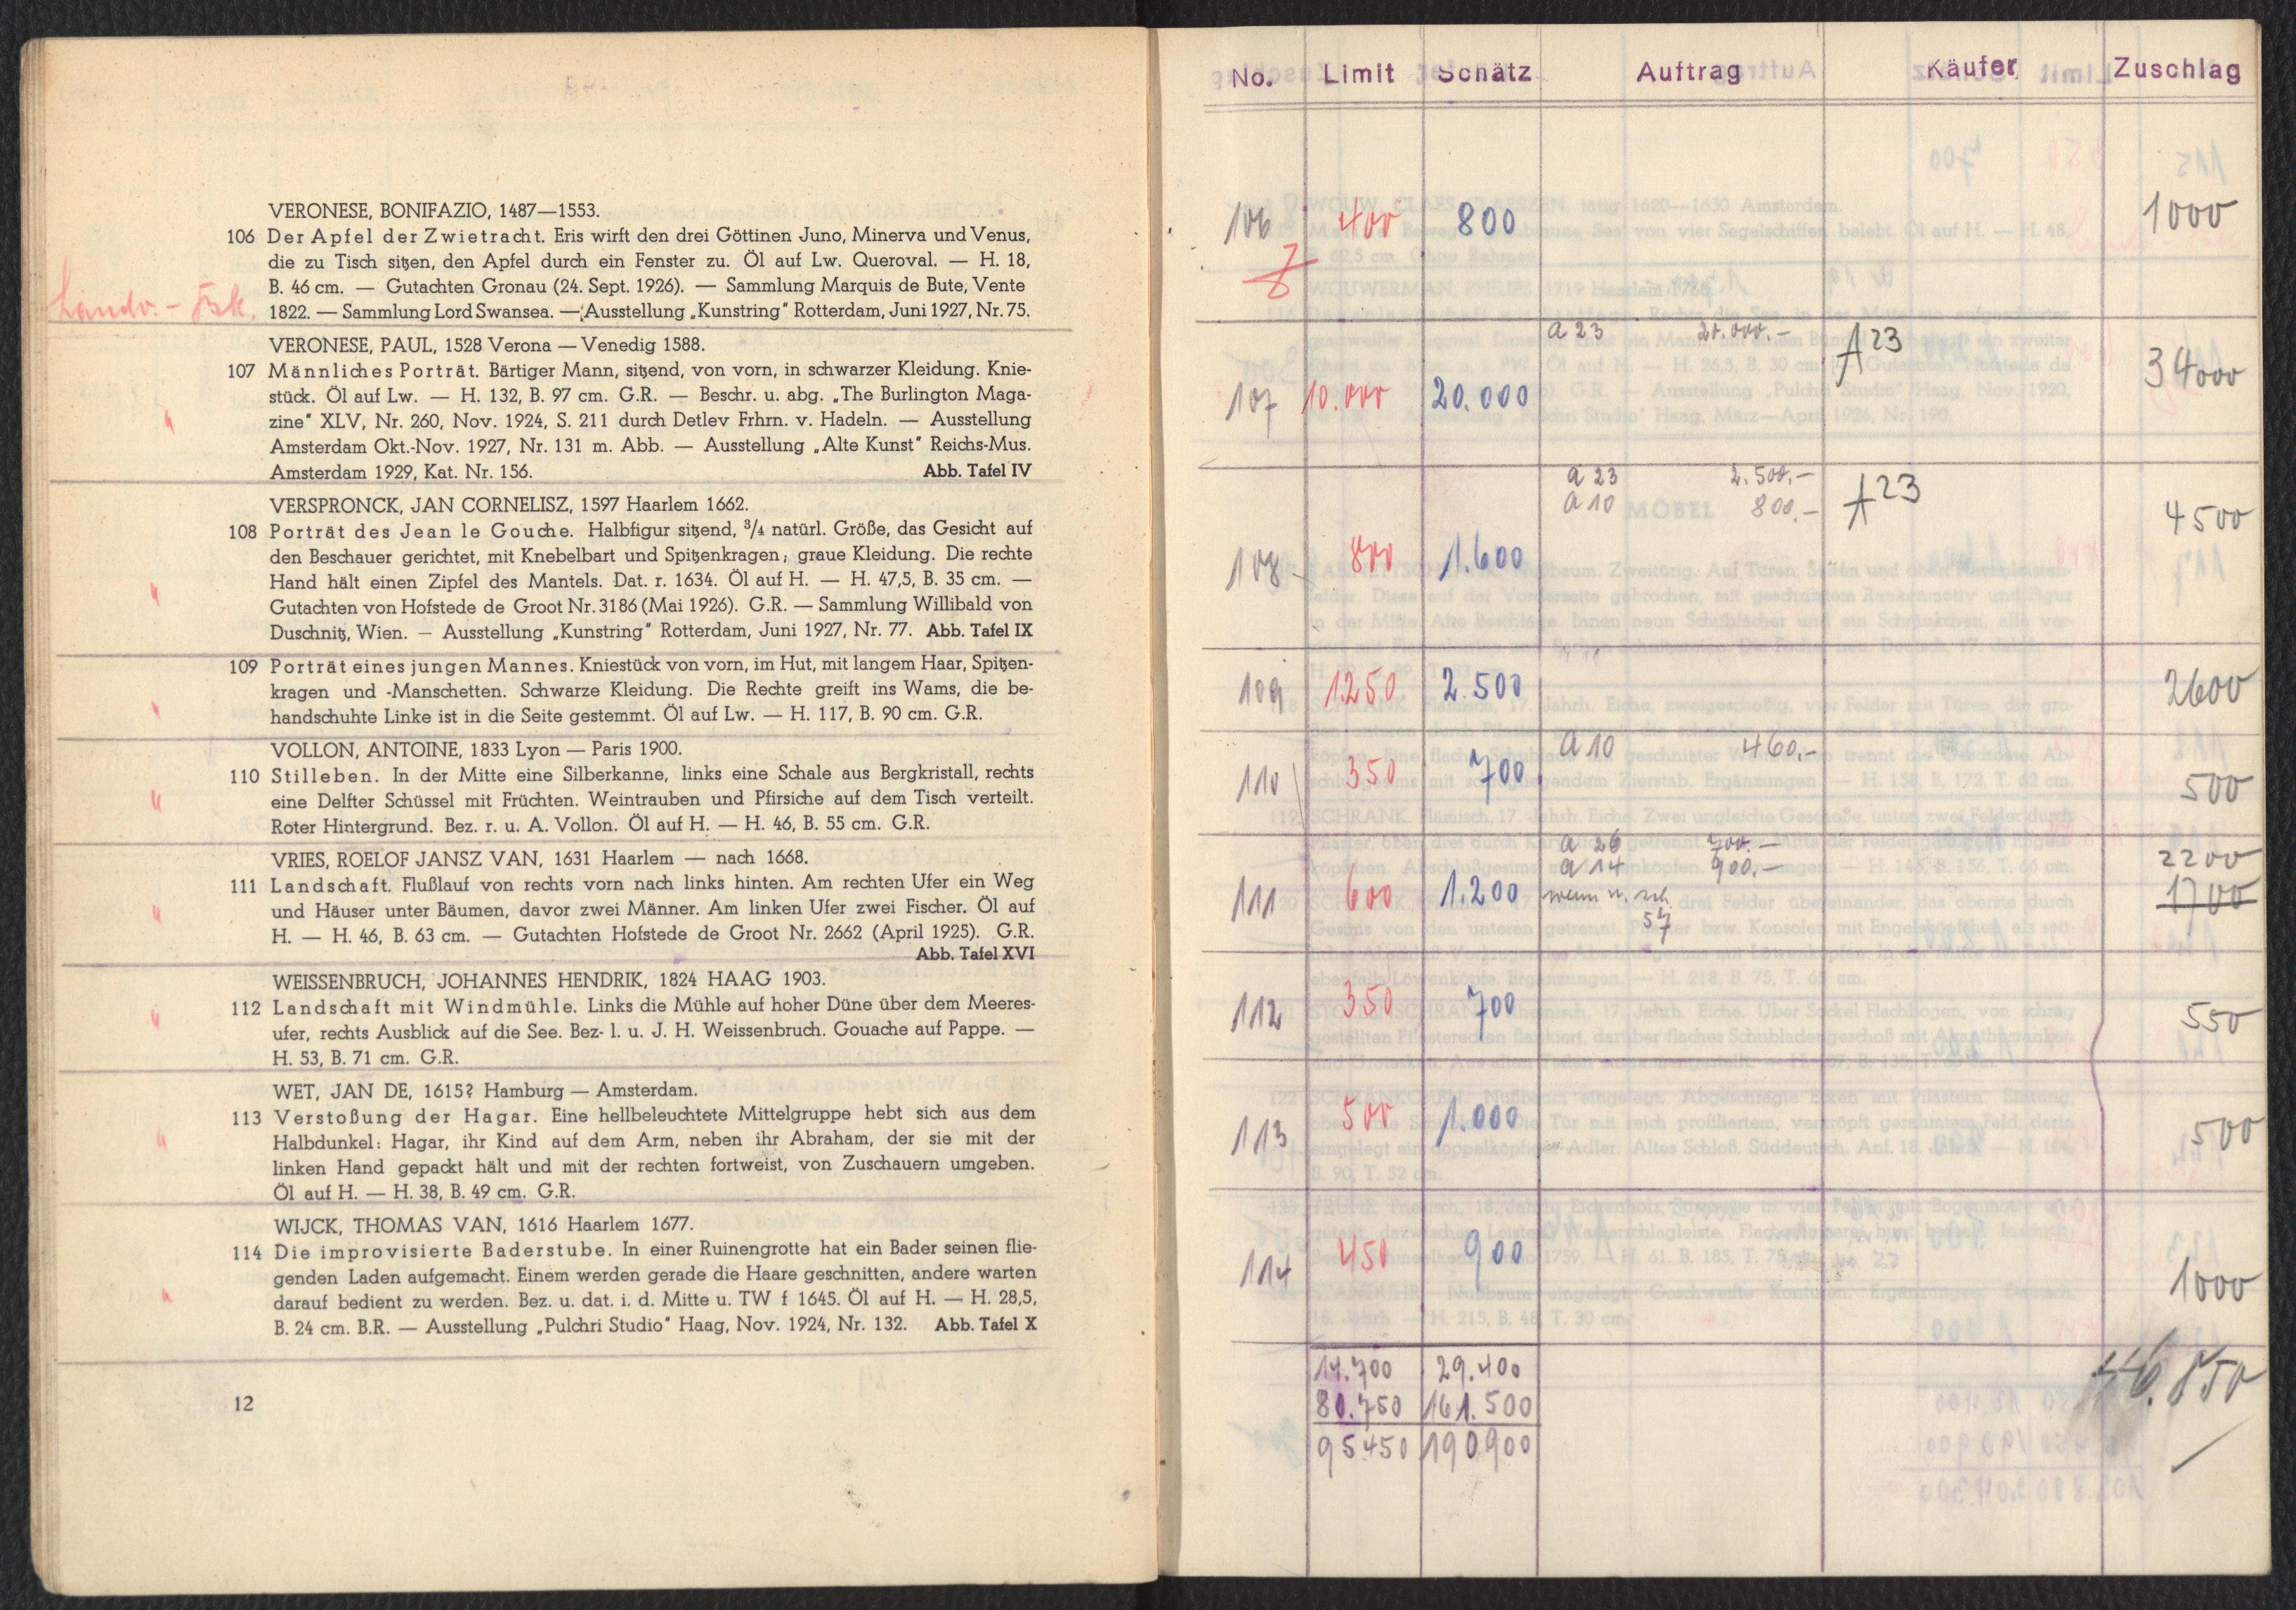 VERONESE, BONIFAZIO, 1487—1553.
106 Der Apfel der Zwietracht. Eris wirft den drei Göttinen Juno, Minerva und Venus,
die zu Tisch sitzen, den Apfel durch ein Fenster zu. Öl auf Lw. Queroval. — H. 18,
B. 46 cm. — Gutachten Gronau (24. Sept. 1926). — Sammlung Marquis de Bute, Vente
1822. — Sammlung Lord Swansea. — Ausstellung „Kunstring" Rotterdam, Juni 1927, Nr. 75.
VERONESE, PAUL, 1528 Verona — Venedig 1588.
107 Männliches Porträt. Bärtiger Mann, sitzend, von vorn, in schwarzer Kleidung. Knie-
stück. Öl auf Lw. — H. 132, B. 97 cm. G.R. — Beschr. u. abg. „The Burlington Maga-
zine" XLV, Nr. 260, Nov. 1924, S. 211 durch Detlev Frhrn. v. Hadeln. — Ausstellung
Amsterdam Okt.-Nov. 1927, Nr. 131 m. Abb. — Ausstellung „Alte Kunst" Reichs-Mus.
Amsterdam 1929, Kat. Nr. 156. Abb. Tafel IV
VERSPRONCK, JAN CORNELISZ, 1597 Haarlem 1662.
108 Porträt des Jean le Gouche. Halbfigur sitzend, ¾ natürl. Größe, das Gesicht auf
den Beschauer gerichtet, mit Knebelbart und Spitzenkragen; graue Kleidung. Die rechte
Hand hält einen Zipfel des Mantels. Dat. r. 1634. Öl auf H. — H. 47,5, B. 35 cm. —
Gutachten von Hofstede de Groot Nr. 3186 (Mai 1926). G.R. — Sammlung Willibald von
Duschnitz, Wien. — Ausstellung „Kunstring" Rotterdam, Juni 1927, Nr. 77. Abb. Tafel IX
109 Porträt eines jungen Mannes. Kniestück von vorn, im Hut, mit langem Haar, Spitzen-
kragen und -Manschetten. Schwarze Kleidung. Die Rechte greift ins Wams, die be-
handschuhte Linke ist in die Seite gestemmt. Öl auf Lw. — H. 117, B. 90 cm. G.R.
VOLLON, ANTOINE, 1833 Lyon — Paris 1900.
110 Stilleben. In der Mitte eine Silberkanne, links eine Schale aus Bergkristall, rechts
eine Delfter Schüssel mit Früchten. Weintrauben und Pfirsiche auf dem Tisch verteilt.
Roter Hintergrund. Bez. r. u. A. Vollon. Öl auf H. — H. 46, B. 55 cm. G.R.
VRIES, ROELOF JANSZ VAN, 1631 Haarlem — nach 1668.
111 Landschaft. Flußlauf von rechts vorn nach links hinten. Am rechten Ufer ein Weg
und Häuser unter Bäumen, davor zwei Männer. Am linken Ufer zwei Fischer. Öl auf
H. — H. 46, B. 63 cm. — Gutachten Hofstede de Groot Nr. 2662 (April 1925). G.R.
Abb. Tafel XVI
WEISSENBRUCH, JOHANNES HENDRIK, 1824 HAAG 1903.
112 Landschaft mit Windmühle. Links die Mühle auf hoher Düne über dem Meeres-
ufer, rechts Ausblick auf die See. Bez- l. u. J. H. Weissenbruch. Gouache auf Pappe. —
H. 53, B. 71 cm. G.R.
WET, JAN DE, 1615? Hamburg — Amsterdam.
113 Verstoßung der Hagar. Eine hellbeleuchtete Mittelgruppe hebt sich aus dem
Halbdunkel: Hagar, ihr Kind auf dem Arm, neben ihr Abraham, der sie mit der
linken Hand gepackt hält und mit der rechten fortweist, von Zuschauern umgeben.
Öl auf H. — H. 38, B. 49 cm. G.R.
WIJCK, THOMAS VAN, 1616 Haarlem 1677.
114 Die improvisierte Baderstube. In einer Ruinengrotte hat ein Bader seinen flie-
genden Laden aufgemacht. Einem werden gerade die Haare geschnitten, andere warten
darauf bedient zu werden. Bez. u. dat. i. d. Mitte u. TW f 1645. Öl auf H. — H. 28,5,
B. 24 cm. B.R. — Ausstellung „Pulchri Studio" Haag, Nov. 1924, Nr. 132. Abb. Tafel X
12
No. Limit Schätz Auftrag Käufer Zuschlag
106 400 800 1000
a 23 20.000.- A 23
107 10.000 20.000 34000
a 23 2.500.- A 23
a 10 800.-
108 800 1.600 4500
109 1250 2.500 2600
a 10 460.-
110 350 700 500
a 26 700.-
a 14 900.- 2200
111 600 1.200 wenn 1700
57
112 350 700 550
113 500 1.000 500
114 450 900 1000
14.700 29.400 46.850
80.750 161.500
95450 190900